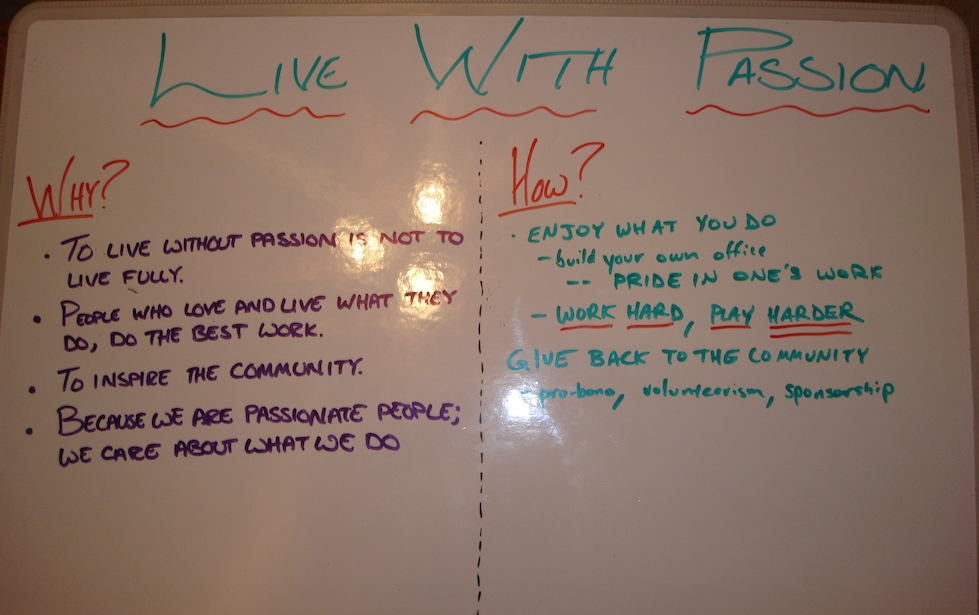 LIVE WITH PASSION
WHY?
• TO LIVE WITHOUT PASSION IS NOT TO
LIVE FULLY.
• PEOPLE WHO LOVE AND LIVE WHAT THEY
DO, DO THE BEST WORK.
• TO INSPIRE THE COMMUNITY.
• BECAUSE WE ARE PASSIONATE PEOPLE;
WE CARE ABOUT WHAT WE DO
HOW?
• ENJOY WHAT YOU DO
- build your own office
-- PRIDE IN ONE'S WORK
- WORK HARD, PLAY HARDER
GIVE BACK TO THE COMMUNITY
- pro-bono, volunteerism, sponsorship